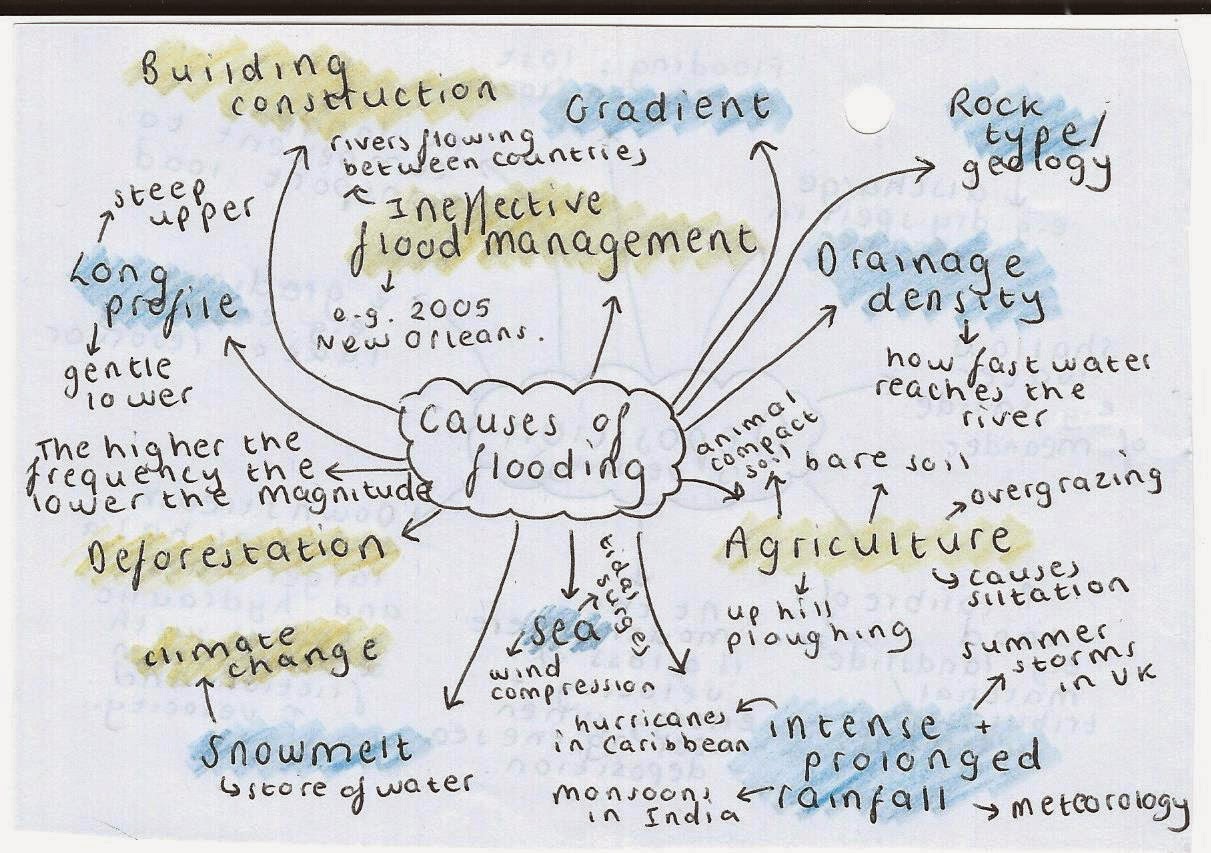 Building
construction
rivers flowing
between countries
Gradient
Rock
type/
geology
steep
upper
Ineffective
flood management
e.g. 2005
New Orleans.
Long
profile
gentle
lower
Drainage
density
how fast water
reaches the
river
Causes of
flooding
The higher the
frequency the
lower the magnitude
animal
compact
soil
bare soil
overgrazing
Agriculture
causes
siltation
up hill
ploughing
Deforestation
climate
change
Snowmelt
store of water
tidal
surge
sea
wind
compression
summer
storms
in UK
hurricanes
in Caribbean
intense +
prolonged
rainfall
monsoons
in India
meteorology